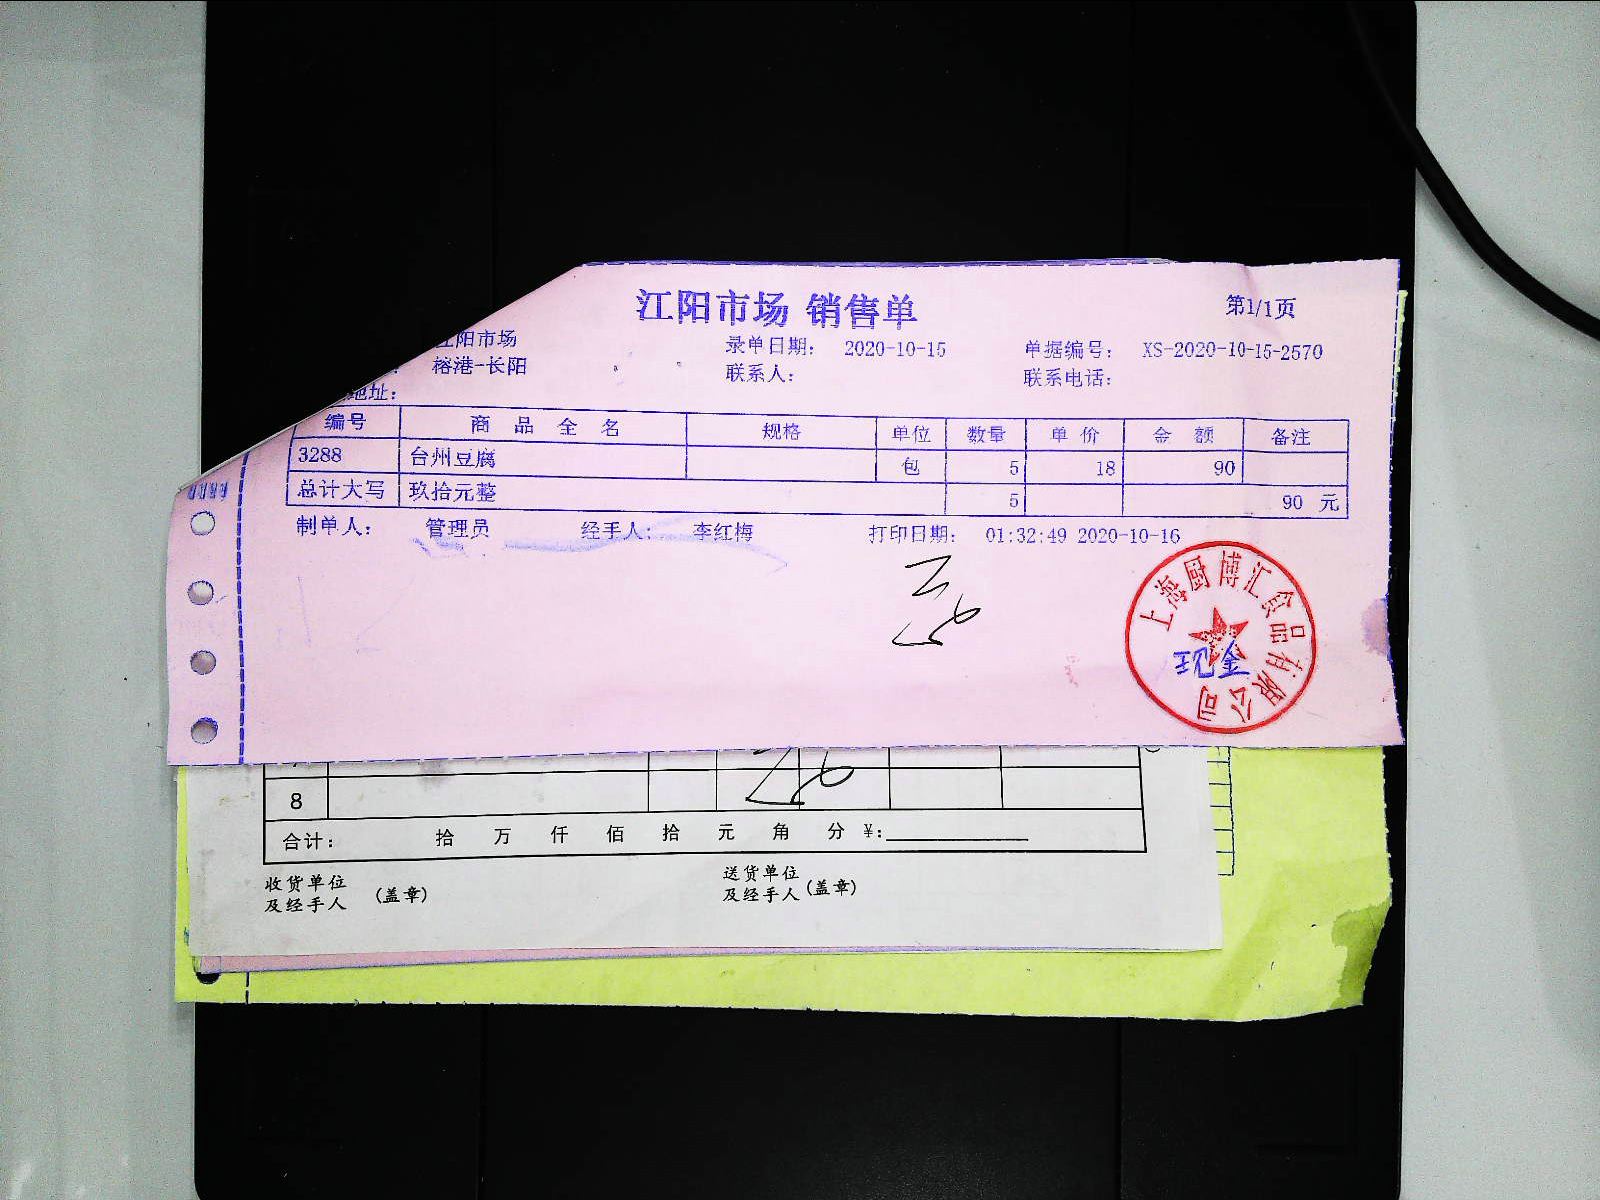 江阳市场 销售单 第1/1页
江阳市场 录单日期： 2020-10-15 单据编号： XS-2020-10-15-2570
榕港-长阳 联系人： 联系电话：
地址：
编号 商品全名 规格 单位 数量 单价 金额 备注
3288 台州豆腐 包 5 18 90
总计大写 玖拾元整 5 90 元
制单人： 管理员 经手人： 李红梅 打印日期： 01:32:49 2020-10-16
上海厨博汇食品有限公司
现金
8
合计： 拾 万 仟 佰 拾 元 角 分 ¥:
收货单位 送货单位
及经手人 (盖章) 及经手人 (盖章)